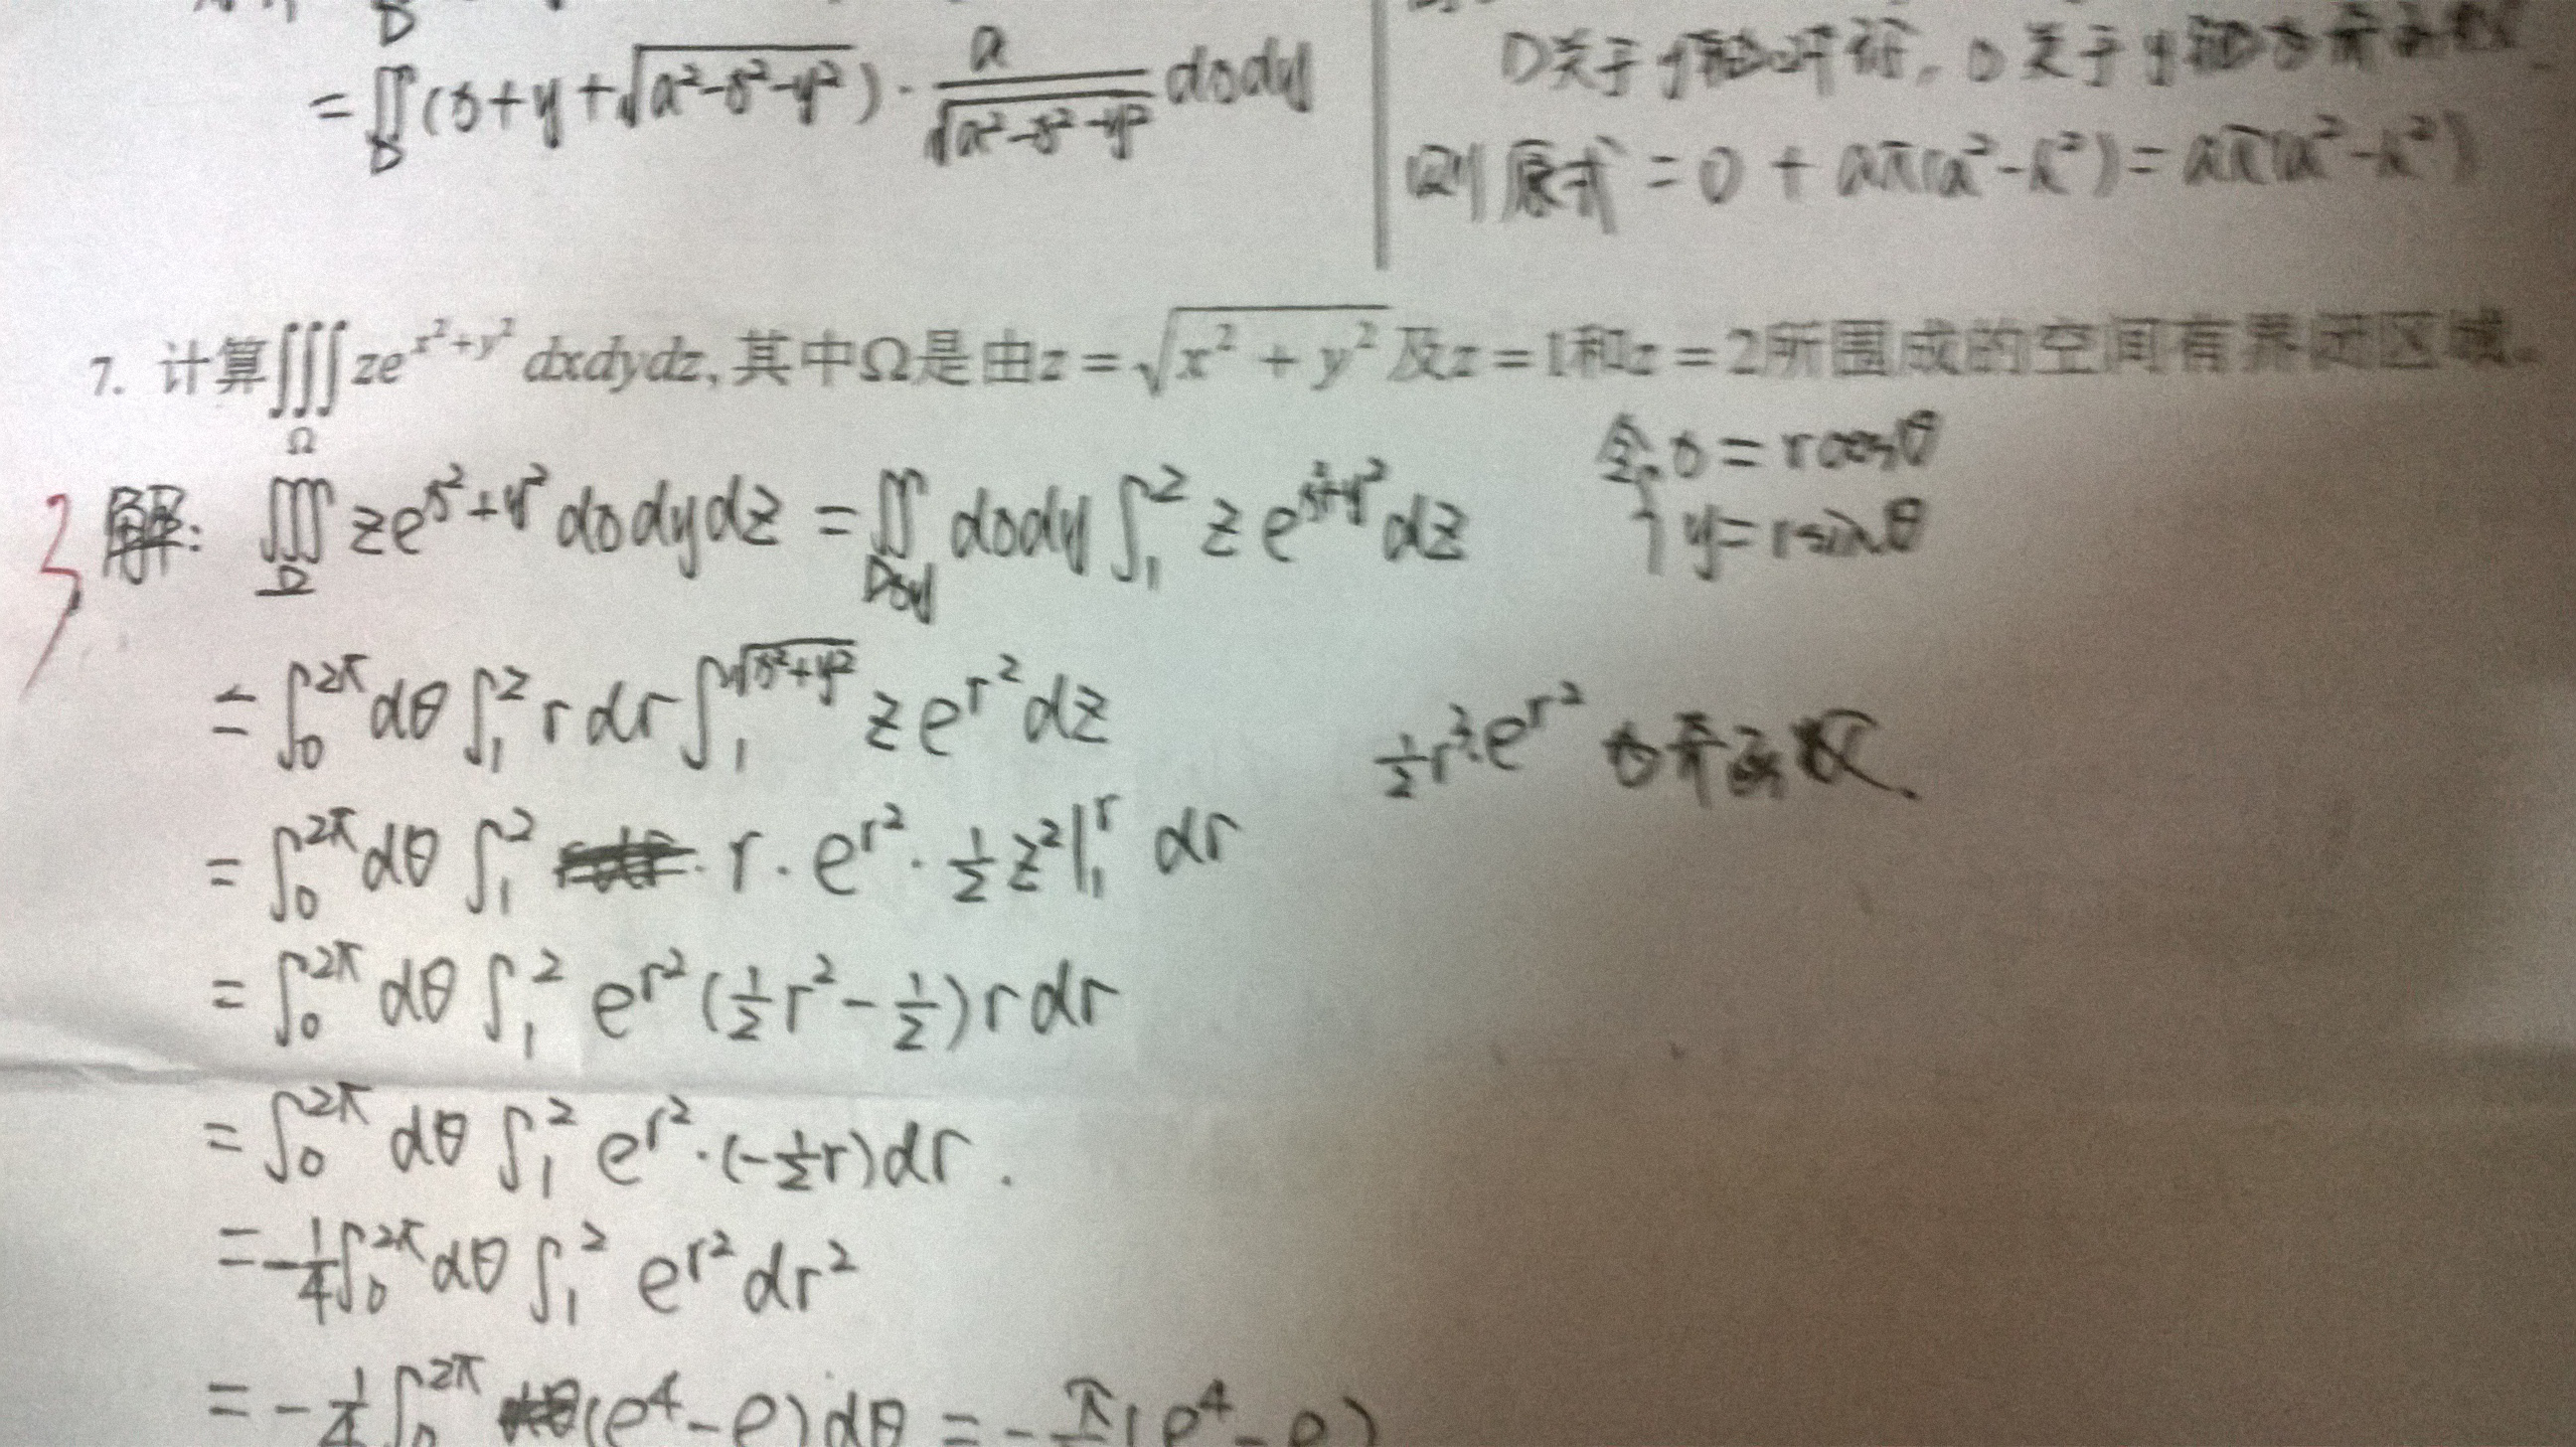 = ∬_D (x+y+√(a²-x²-y²)) · a/√(a²-x²-y²) dxdy
D关于y轴对称, x关于y轴为奇函数
则原式 = 0 + aπ(a²-h²) = aπ(a²-h²)
7. 计算∭_Ω ze^(x²+y²) dxdydz, 其中Ω是由z = √(x² + y²)及z = 1和z = 2所围成的空间有界闭区域。
令{x = rcosθ
y = rsinθ
3
解: ∭_Ω ze^(x²+y²) dxdydz = ∬_Dxy dxdy ∫_1^2 ze^(x²+y²) dz
= ∫_0^2π dθ ∫_1^2 r dr ∫_1^√(x²+y²) ze^(r²) dz
½r³·e^(r²) 为奇函数.
= ∫_0^2π dθ ∫_1^2 r · e^(r²) · ½z²|_1^r dr
= ∫_0^2π dθ ∫_1^2 e^(r²) (½r² - ½) r dr
= ∫_0^2π dθ ∫_1^2 e^(r²) · (-½r) dr .
= -¼∫_0^2π dθ ∫_1^2 e^(r²) dr²
= -¼∫_0^2π (e⁴-e) dθ = -π/2 (e⁴-e)